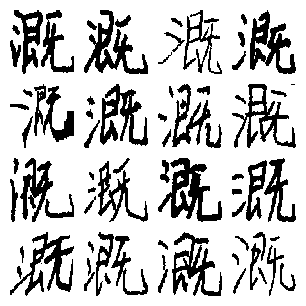 溉溉溉溉
溉溉溉溉
溉溉溉溉
溉溉溉溉